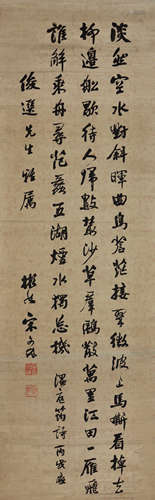 淡然空水對斜暉曲島蒼茫接翠微波上馬嘶看棹去
柳邊船歇待人歸數叢沙草羣鷗散萬里江田一雁飛
誰解乘舟尋范蠡五湖煙水獨忘機 溫庭筠詩丙戌
俊選先生雅屬
宋